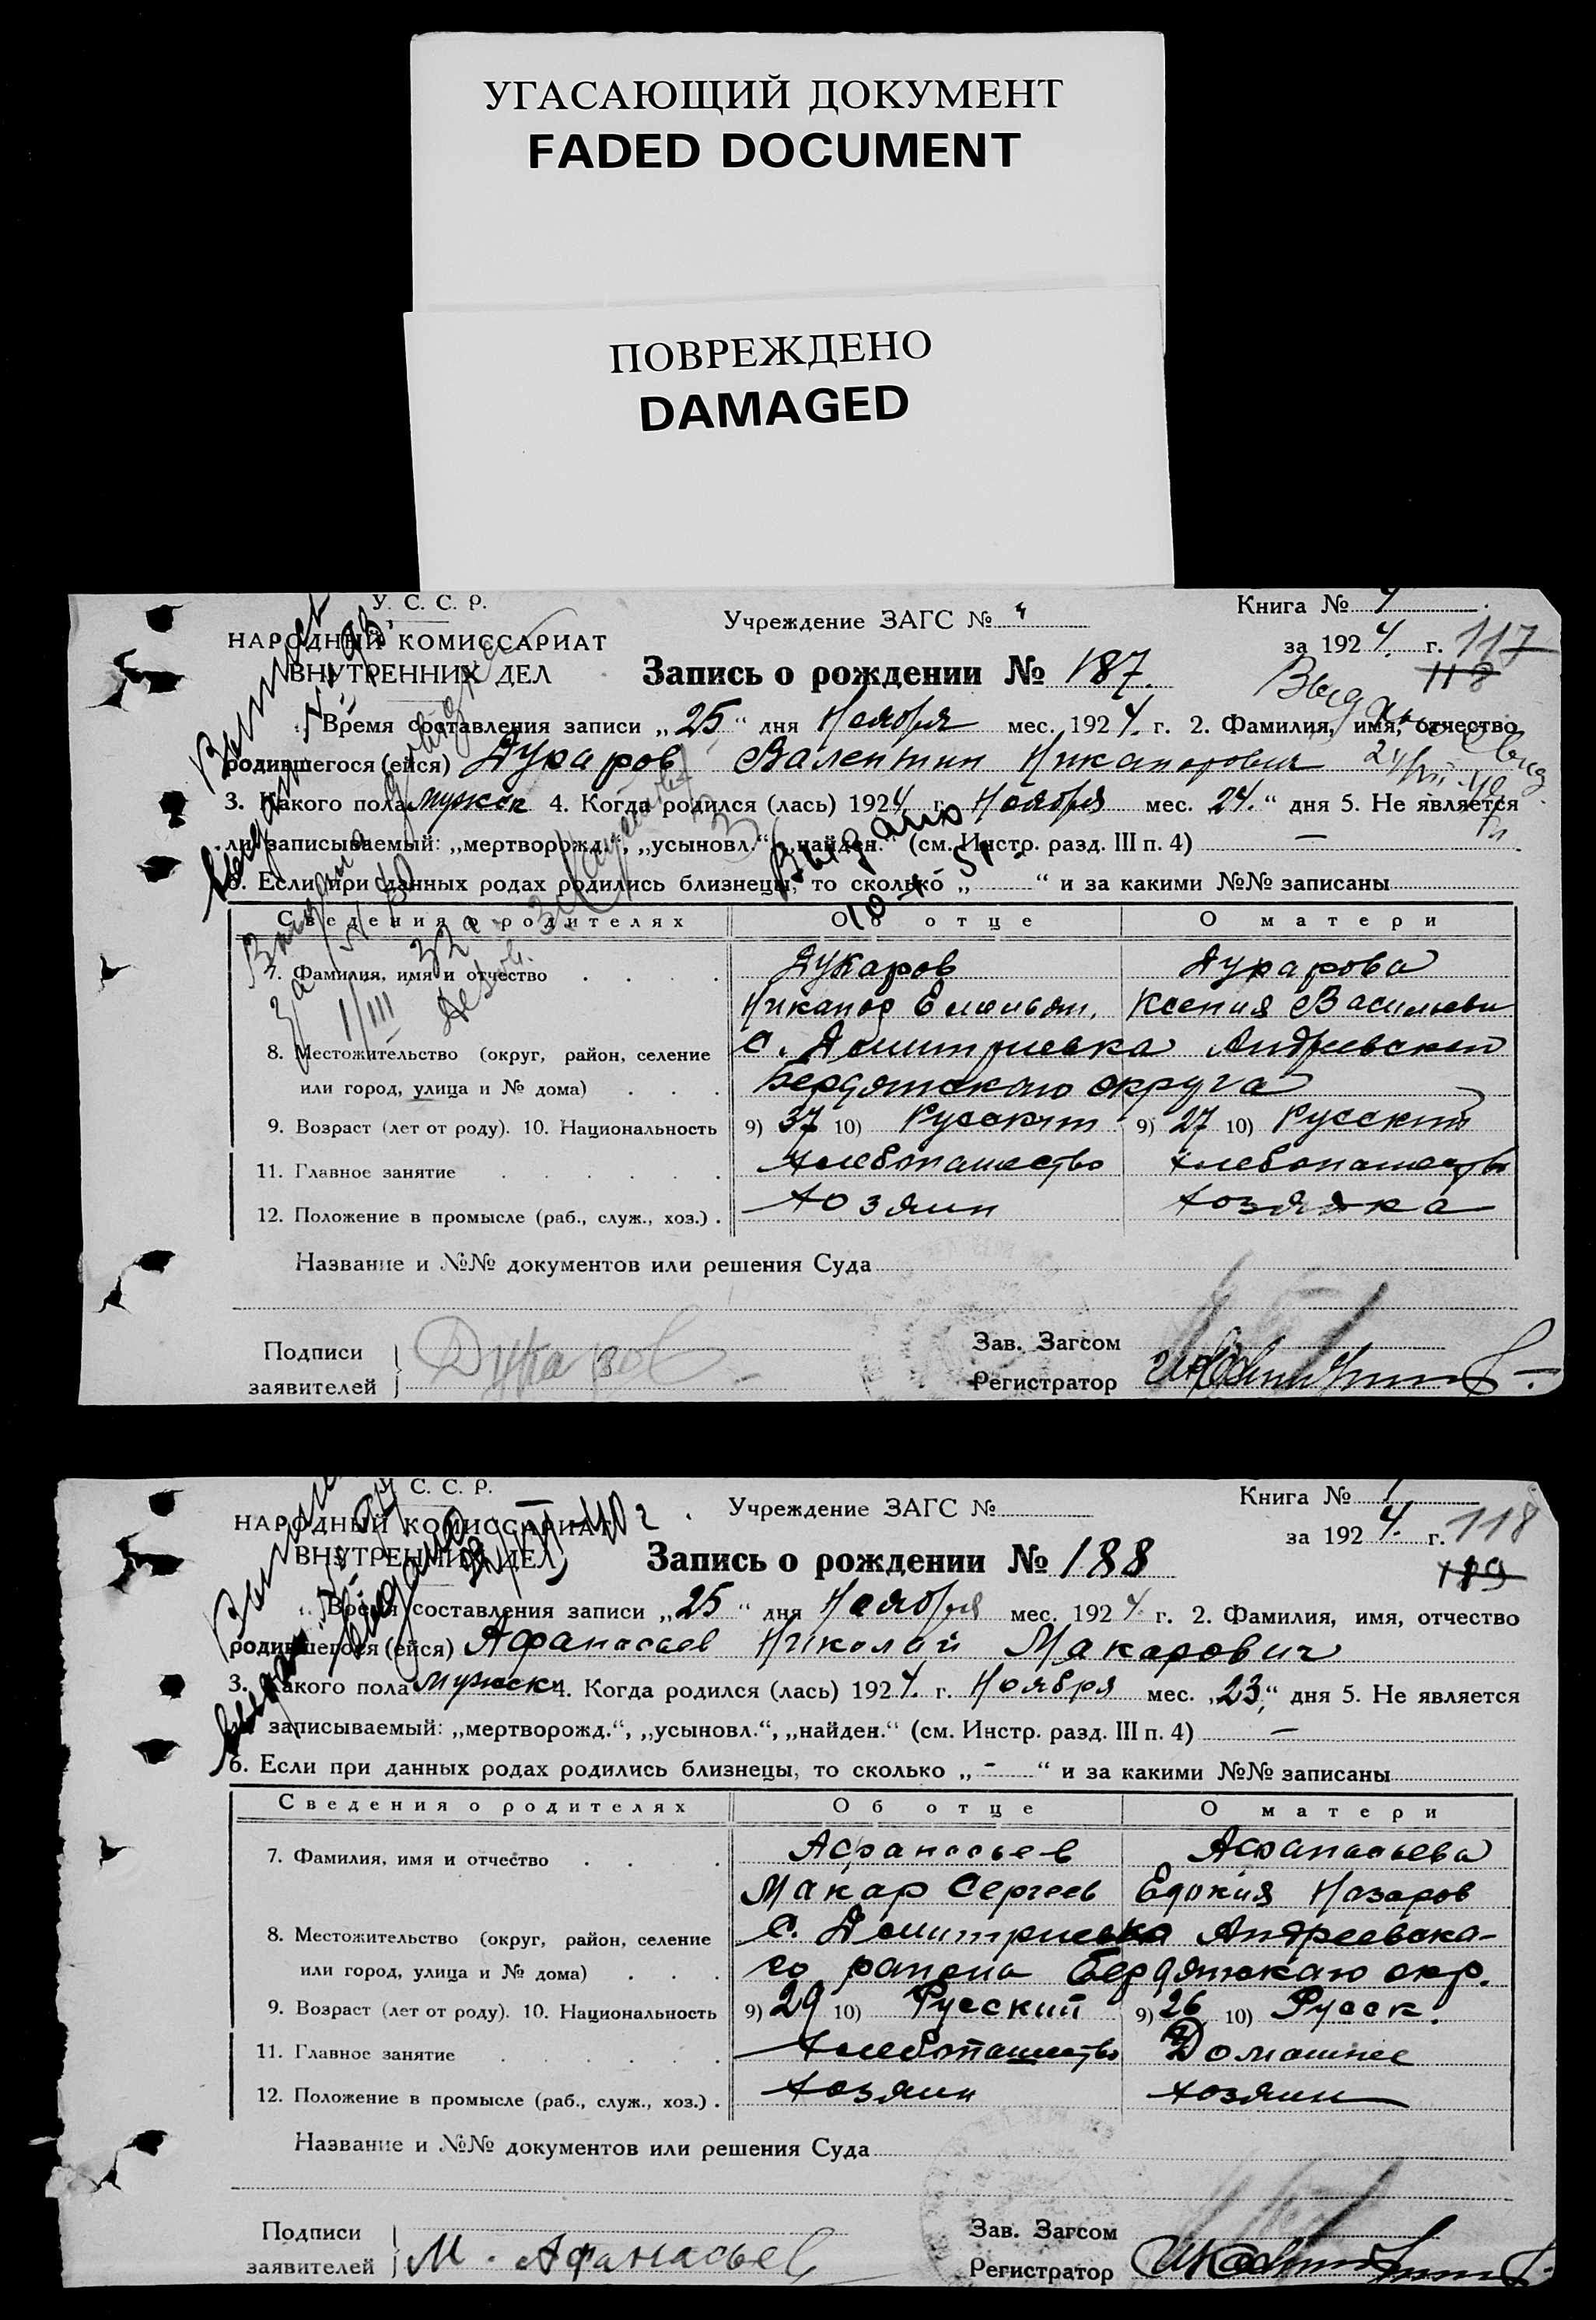 УГАСАЮЩИЙ ДОКУМЕНТ
FADED DOCUMENT
ПОВРЕЖДЕНО
DAMAGED
У. С. С. Р.
НАРОДНЫЙ КОМИССАРИАТ
ВНУТРЕННИХ ДЕЛ
Учреждение ЗАГС № 4
Книга №
за 1924 г. 117
118
Запись о рождении № 187.
Время составления записи „25“ дня Ноября мес. 1924 г. 2. Фамилия, имя, отчество
родившегося (ейся) Дукаров Валентин Никанорович
3. Какого пола мужск 4. Когда родился (лась) 1924 г. Ноября мес. 24.“ дня 5. Не является
ли записываемый: „мертворожд.“, „усыновл.“, „найден.“ (см. Инстр. разд. III п. 4) —
6. Если при данных родах родились близнецы, то сколько „ “ и за какими №№ записаны
Выдано
Сведения о родителях Об отце О матери
7. Фамилия, имя и отчество Дукаров Дукарова
Никанор Емельян. Ксения Василиевн
8. Местожительство (округ, район, селение С. Дмитриевка Андреевского
или город, улица и № дома) Бердянского округа
9. Возраст (лет от роду). 10. Национальность 9) 37 10) Русский 9) 27 10) Русский
11. Главное занятие Хлебопашество Хлебопашество
12. Положение в промысле (раб., служ., хоз.) Хозяин Хозяйка
Название и №№ документов или решения Суда
Подписи
заявителей Дукаров
Зав. Загсом
Регистратор
У. С. С. Р.
НАРОДНЫЙ КОМИССАРИАТ
ВНУТРЕННИХ ДЕЛ
Учреждение ЗАГС №
Книга № 1
за 1924. г. 118
189
Запись о рождении № 188
Время составления записи „25“ дня Ноября мес. 1924 г. 2. Фамилия, имя, отчество
родившегося (ейся) Афанасьев Николай Макарович
3. Какого пола мужск 4. Когда родился (лась) 1924. г. Ноября мес. „23“ дня 5. Не является
записываемый: „мертворожд.“, „усыновл.“, „найден.“ (см. Инстр. разд. III п. 4) —
6. Если при данных родах родились близнецы, то сколько „ - “ и за какими №№ записаны
Сведения о родителях Об отце О матери
7. Фамилия, имя и отчество Афанасьев Афанасьева
Макар Сергеев Едокия Назаров
8. Местожительство (округ, район, селение С. Дмитриевка Андреевска-
или город, улица и № дома) го района Бердянскаго окр.
9. Возраст (лет от роду). 10. Национальность 9) 29 10) Русский 9) 26 10) Русск.
11. Главное занятие Хлебопашество Домашнее
12. Положение в промысле (раб., служ., хоз.) Хозяин Хозяин
Название и №№ документов или решения Суда
Подписи
заявителей М. Афанасьев
Зав. Загсом
Регистратор